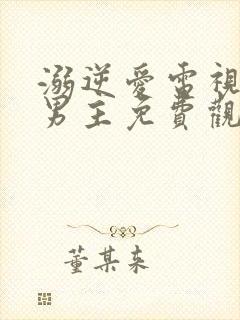 溺逆愛雷視
男主免費觀
董某来